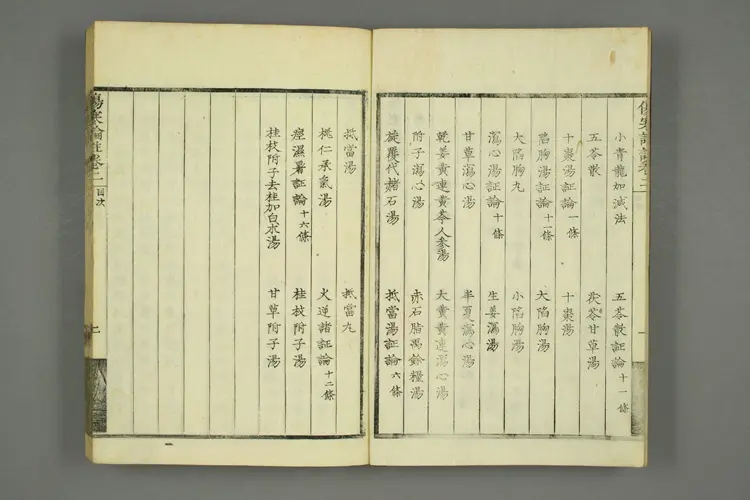 傷寒論註卷二
小青龍加減法　五苓散証論十一條
五苓散　茯苓甘草湯
十棗湯証論一條　十棗湯
陷胸湯証論十一條　大陷胸湯
大陷胸丸　小陷胸湯
瀉心湯証論十條　生姜瀉湯
甘草瀉心湯　半夏瀉心湯
乾姜黃連黃芩人參湯　大黃黃連瀉心湯
附子瀉心湯　赤石脂禹餘糧湯
旋覆代赭石湯　抵當湯証論六條
抵當湯　抵當丸
桃仁承氣湯　火逆諸証論十二條
痙濕暑証論十六條　桂枝附子湯
桂枝附子去桂加白朮湯　甘草附子湯
傷寒論註卷二
目次